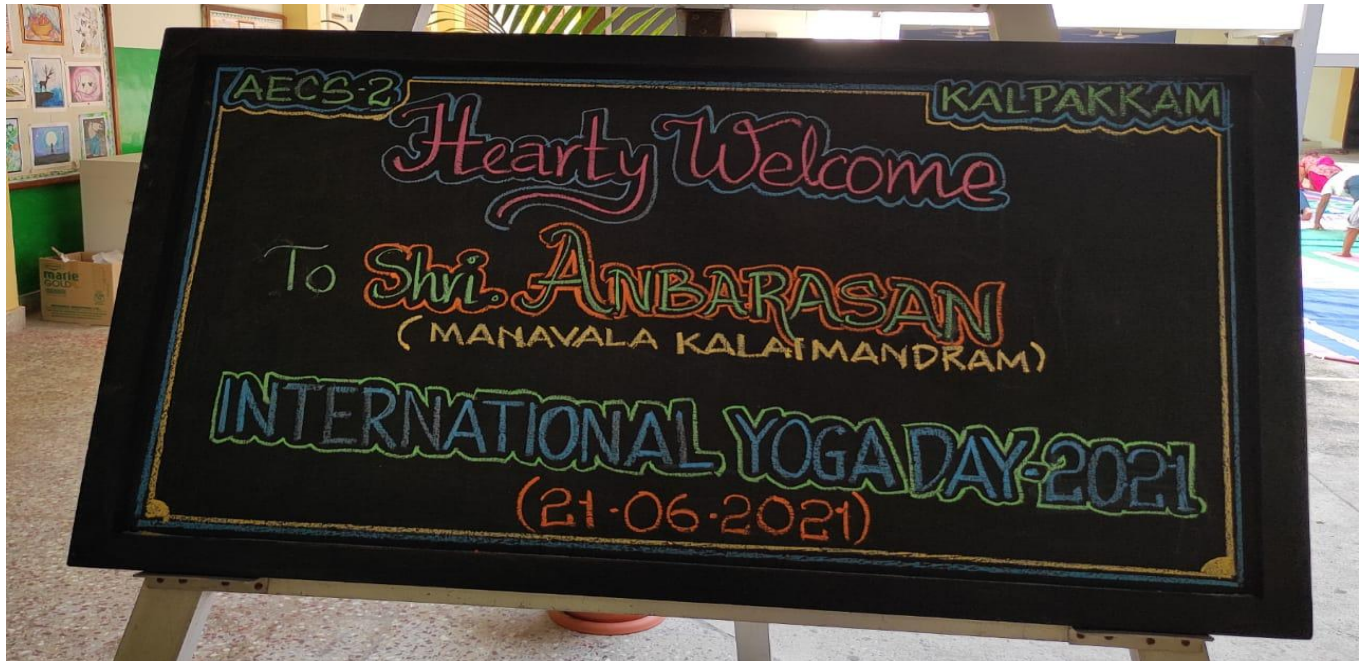 AECS-2 KALPAKKAM
Hearty Welcome
To Shri. ANBARASAN
(MANAVALA KALAIMANDRAM)
INTERNATIONAL YOGA DAY-2021
(21-06-2021)
marie
GOLD